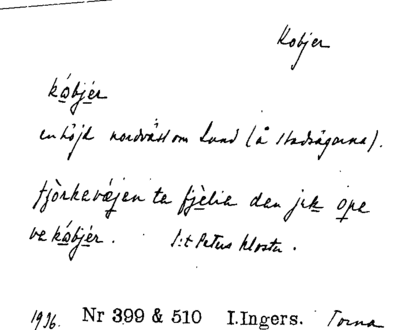 Kobjer
kå̱bjé̱r
en höjd nordväst om Lund (å stadsägorna).
fjòrkevæ̱jen te fjè̱lie den jik ǫpe
ve kå̱bjé̱r. S:t Petus kloster.
1936. Nr 399 & 510 I.Ingers. Torna